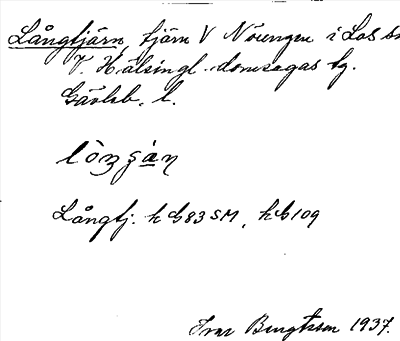 Långtjärn, tjärn V Noungen i Los
V. Hälsingl. domsagas tg.
Gävleb. l.
lòŋʒàn
Långtj. h b 83 SM, h b 109
Ivar Bengtsson 1937.